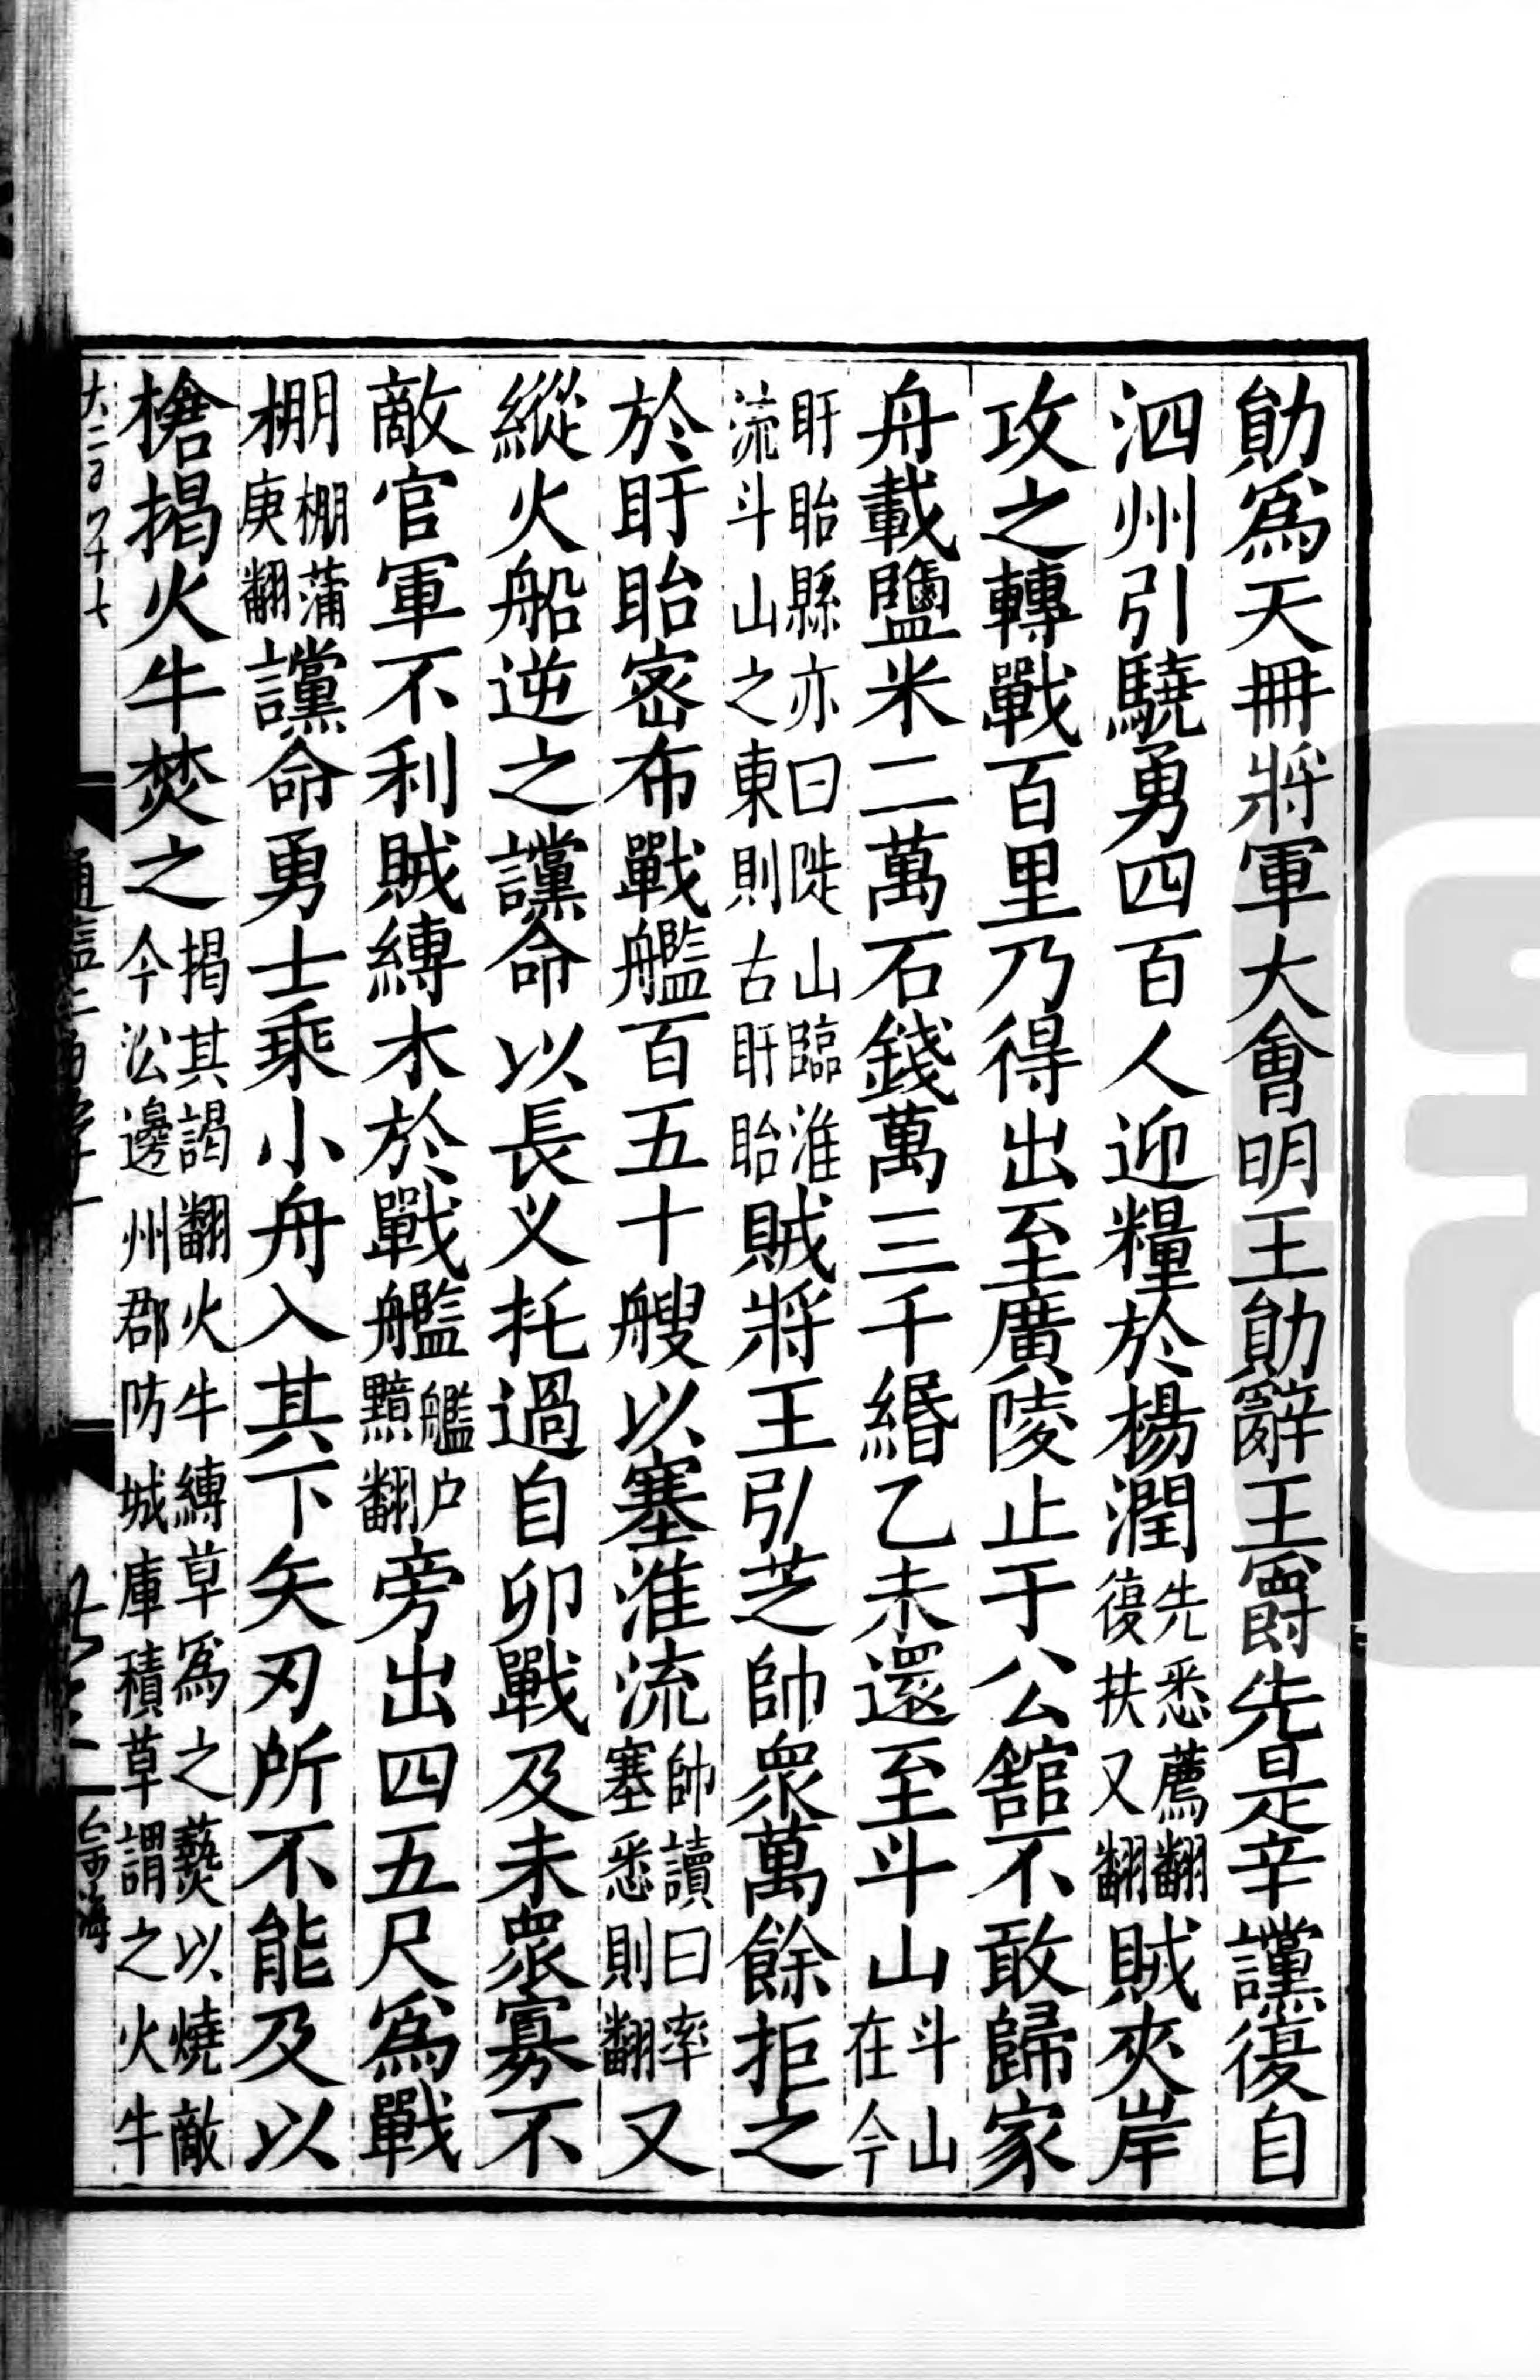 勛爲天冊將軍大會明王勛辭王爵先是辛讜復自
泗州引驍勇四百人迎糧於楊潤先悉薦翻復扶又翻賊夾岸
攻之轉戰百里乃得出至廣陵止于公舘不敢歸家
舟載鹽米二萬石錢萬三千緡乙未還至斗山斗山在今
盱眙縣亦曰陡山臨淮流斗山之東則古盱眙賊將王引芝帥衆萬餘拒之
於盱眙密布戰艦百五十艘以塞淮流帥讀曰率塞悉則翻又
縱火船逆之讜命以長义托過自卯戰及未衆寡不
敵官軍不利賊縛木於戰艦艦户黯翻旁出四五尺爲戰
棚棚蒲庚翻讜命勇士乘小舟入其下矢刃所不能及以
槍揭火牛焚之揭其謁翻火牛縛草爲之爇以燒敵今㳂邊州郡防城庫積草謂之火牛